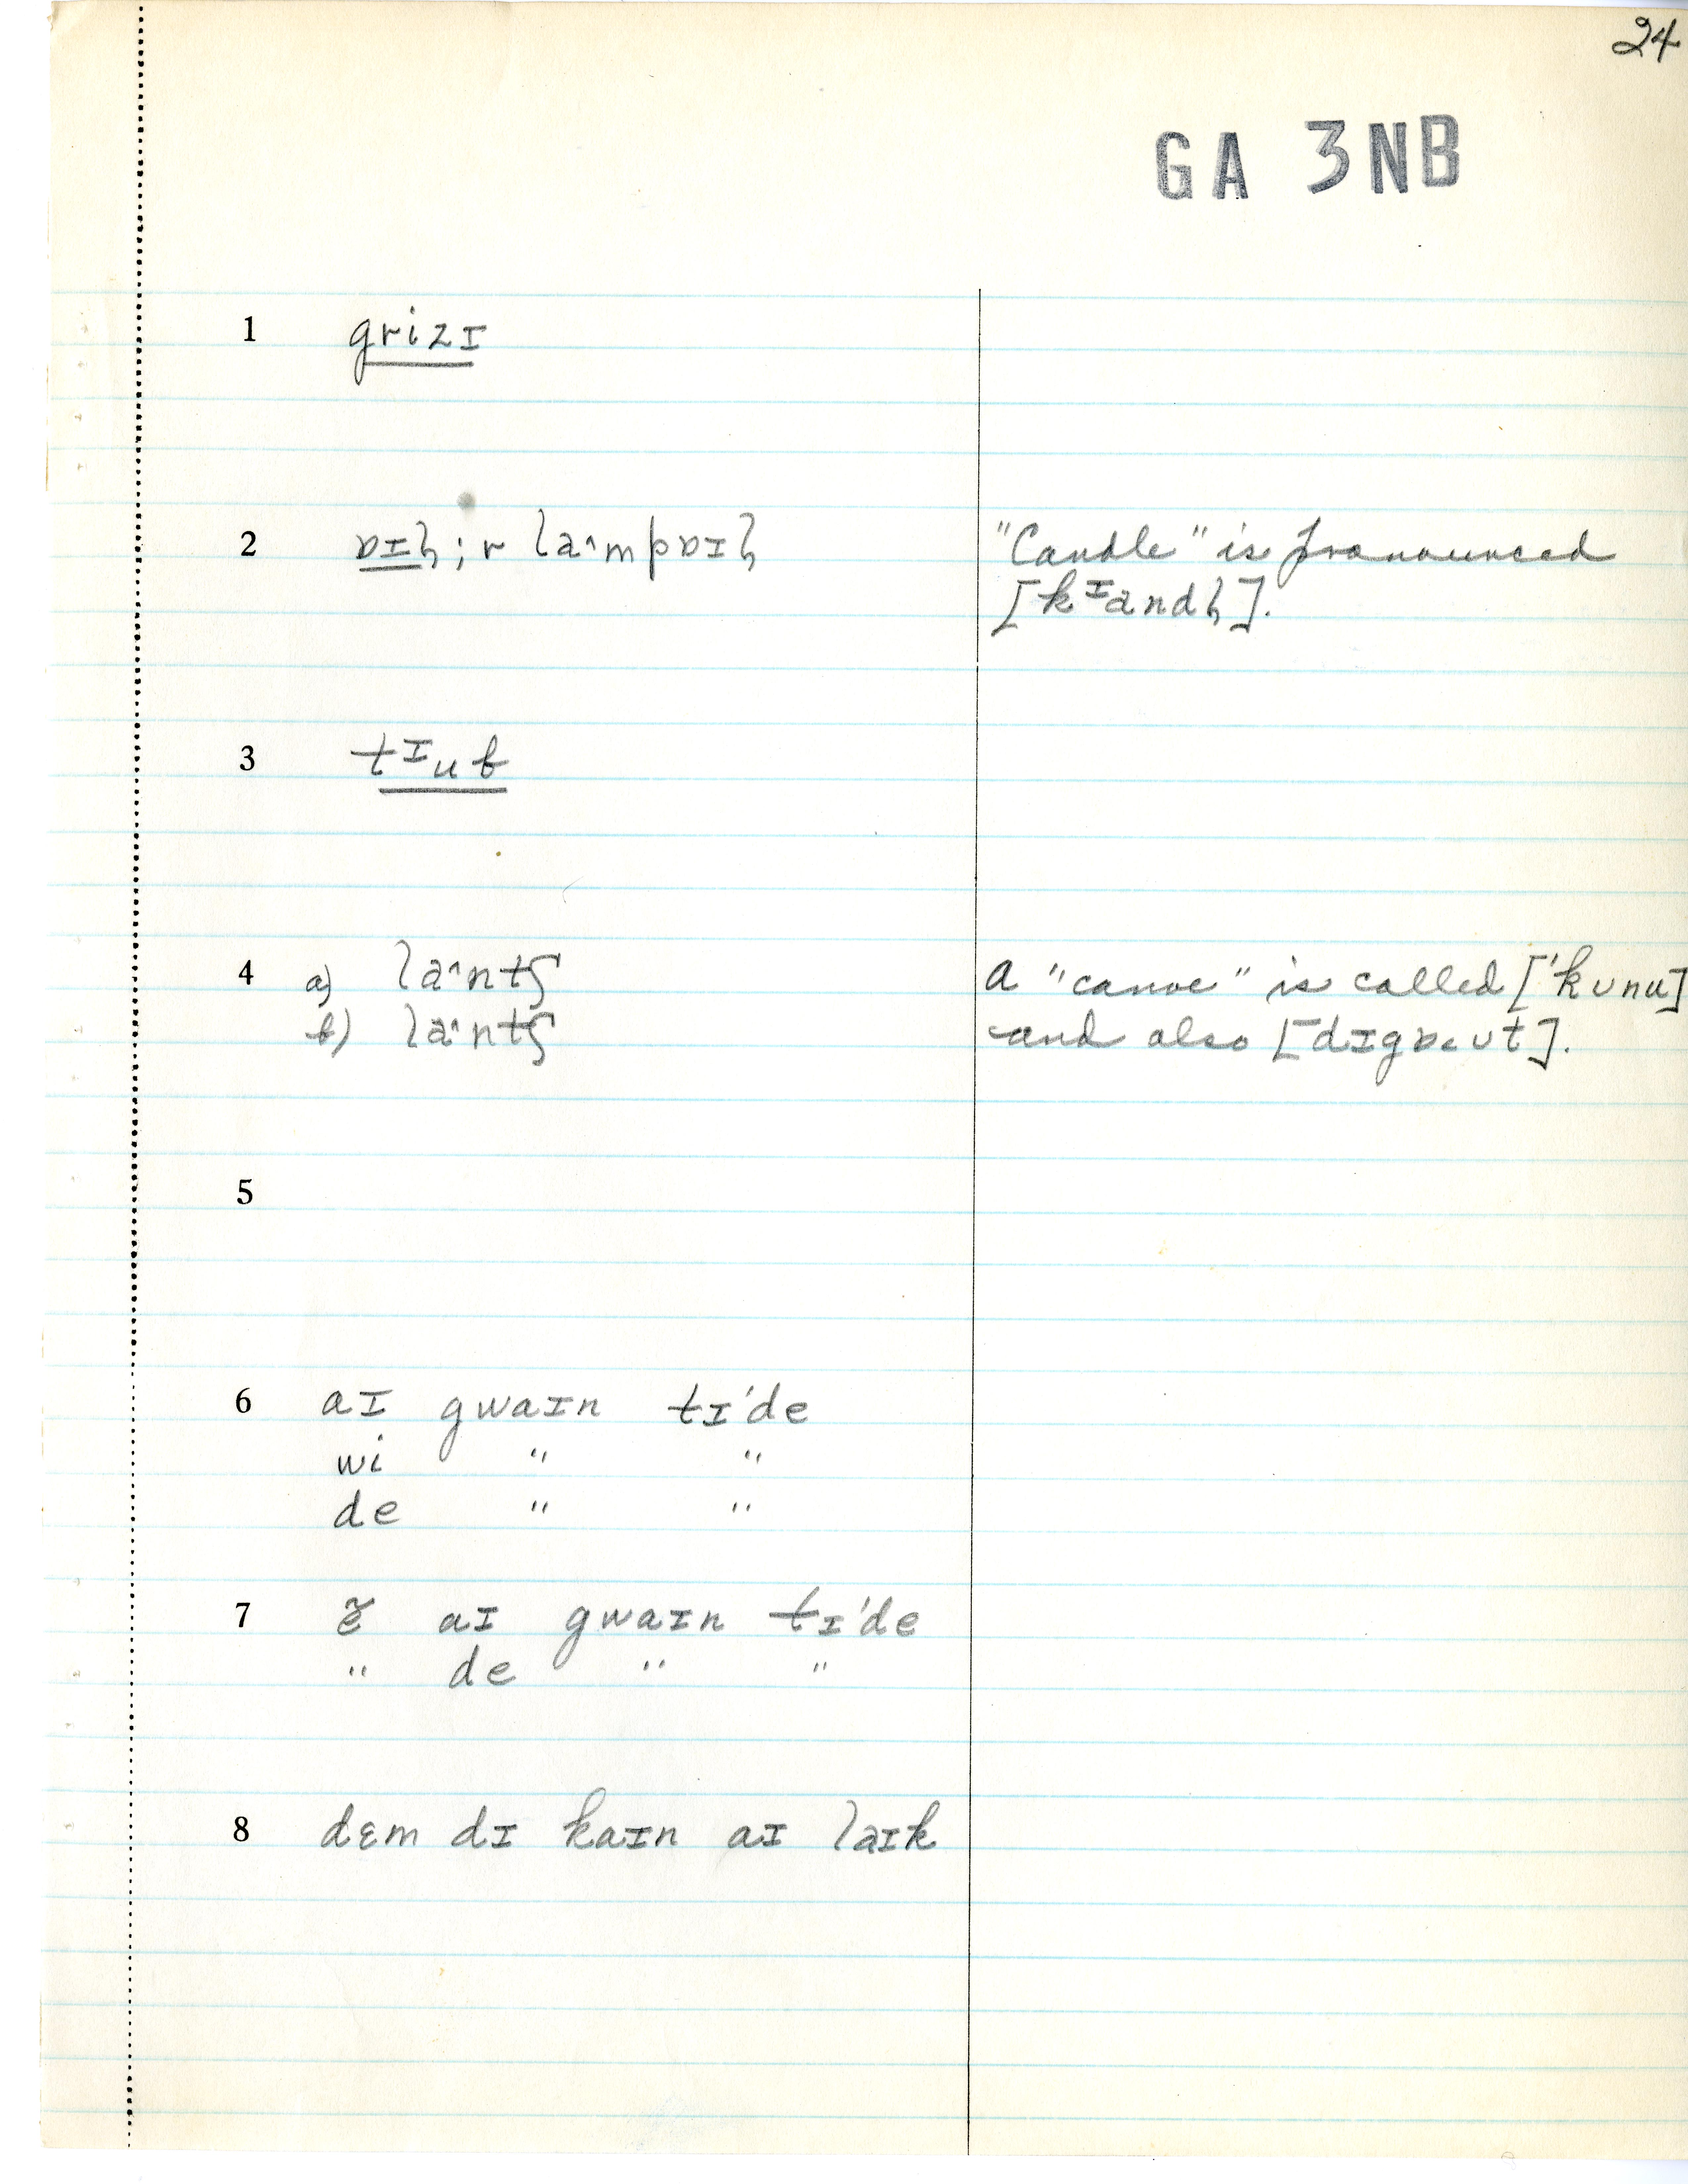 24
GA 3NB
1 grizɪ
2 ɒɪl̩ ; r la˄mpɒɪl "Candle" is pronounced
[kᶦandl̩].
3 tᶦub
4 a) la˄ntʃ A "canoe" is called ['kʊnu]
b) la˄ntʃ and also [dɪgɒ˂ʊt].
5
6 aɪ gwaɪn tɪ'de
wi " "
de " "
7 aɪ gwaɪn tɪ'de
" de " "
8 dɛm dɪ kaɪn aɪ laɪk